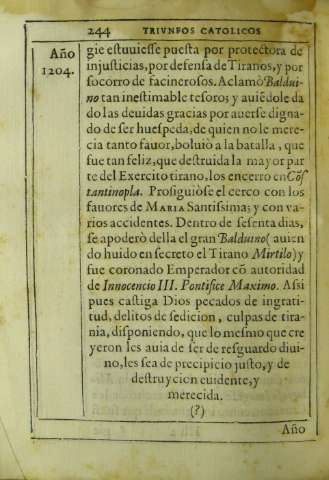 244 TRIVNFOS CATOLICOS
Año
1204.
gie estuuiesse puesta por protectora de
injusticias, por defensa de Tiranos, y por
socorro de facinerosos. Aclamò Baldui-
no tan inestimable tesoro; y auiẽdole da
do las deuidas gracias por auerse digna-
do de ser huespeda, de quien no le mere-
cia tanto fauor, boluiò a la batalla, que
fue tan feliz, que destruida la mayor par
te del Exercito tirano, los encerro en Cõs
tantinopla. Prosiguiòse el cerco con los
fauores de MARIA Santissima; y con va-
rios accidentes. Dentro de sesenta dias,
se apoderò della el gran Balduino (auien
do huido en secreto el Tirano Mirtilo) y
fue coronado Emperador cõ autoridad
de Innocencio III. Pontifice Maximo. Assi
pues castiga Dios pecados de ingrati-
tud, delitos de sedicion, culpas de tira-
nia, disponiendo, que lo mesmo que cre
yeron les auia de ser de resguardo diui-
no, les sea de precipicio justo, y de
destruycion euidente, y
merecida.
(?)
Año